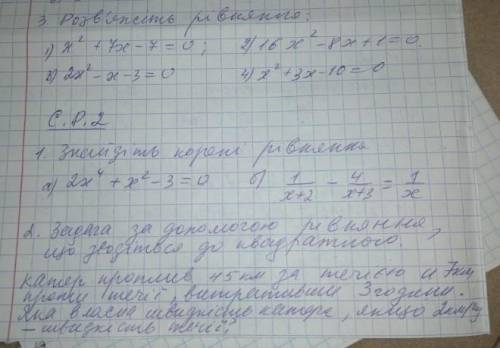 3. Розв'яжіть рівняння:
1) x² + 7x - 7 = 0; 2) 16x² - 8x + 1 = 0.
3) 2x² - x - 3 = 0 4) x² + 3x - 10 = 0
С.Р.2
1. Знайдіть корені рівняння
а) 2x⁴ + x² - 3 = 0 б) 1/(x+2) - 4/(x+3) = 1/x
2. Задача за допомогою рівняння,
що зводиться до квадратного.
Катер проплив 45км за течією и 7км
проти течії, витративши 3години.
Яка власна швидкість катера, якщо 2км/год
- швидкість течії;